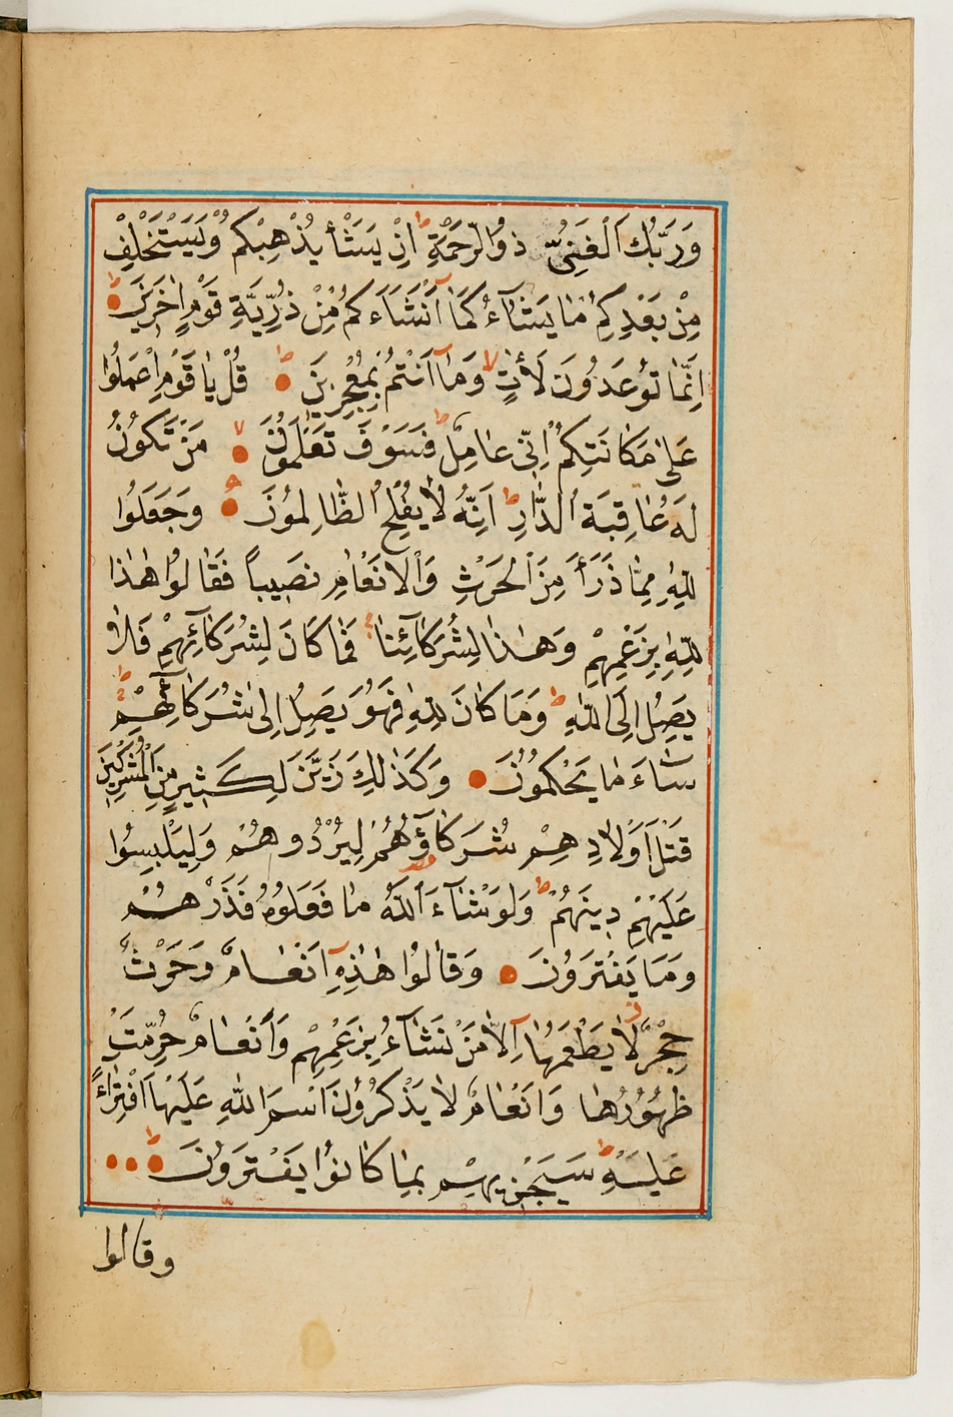 وَرَبُّكَ الْغَنِىُّ ذُو الرَّحْمَةِ ط اِنْ يَشَأْ يُذْهِبْكُمْ وَيَسْتَخْلِفْ
مِنْ بَعْدِكُمْ مَا يَشَآءُ كَمَآ اَنْشَاَكُمْ مِنْ ذُرِّيَّةِ قَوْمٍ اٰخَرِينَ ط
اِنَّمَا تُوعَدُونَ لَأٰتٍ لا وَمَآ اَنْتُمْ بِمُعْجِزِينَ ط قُلْ يَا قَوْمِ اعْمَلُوا
عَلٰى مَكَانَتِكُمْ اِنِّى عَامِلٌ ط فَسَوْفَ تَعْلَمُونَ لا مَنْ تَكُونُ
لَهُ عَاقِبَةُ الدَّارِ ط اِنَّهُ لَا يُفْلِحُ الظَّالِمُونَ وَجَعَلُوا
لِلّٰهِ مِمَّا ذَرَأَ مِنَ الْحَرْثِ وَالْاَنْعَامِ نَصِيباً فَقَالُوا هٰذَا
لِلّٰهِ بِزَعْمِهِمْ وَهٰذَا لِشُرَكَائِنَا فَمَا كَانَ لِشُرَكَائِهِمْ فَلَا
يَصِلُ اِلَى اللّٰهِ ط وَمَا كَانَ لِلّٰهِ فَهُوَ يَصِلُ اِلٰى شُرَكَائِهِمْ ط
سَاءَ مَا يَحْكُمُونَ وَكَذٰلِكَ زَيَّنَ لِكَثِيرٍ مِنَ الْمُشْرِكِينَ
قَتْلَ اَوْلَادِهِمْ شُرَكَاؤُهُمْ لِيُرْدُوهُمْ وَلِيَلْبِسُوا
عَلَيْهِمْ دِينَهُمْ ط وَلَوْ شَآءَ اللّٰهُ مَا فَعَلُوهُ فَذَرْهُمْ
وَمَا يَفْتَرُونَ وَقَالُوا هٰذِهِٓ اَنْعَامٌ وَحَرْثٌ
حِجْرٌ لَا يَطْعَمُهَآ اِلَّا مَنْ نَشَآءُ بِزَعْمِهِمْ وَاَنْعَامٌ حُرِّمَتْ
ظُهُورُهَا وَاَنْعَامٌ لَا يَذْكُرُونَ اسْمَ اللّٰهِ عَلَيْهَا افْتِرَاءً
عَلَيْهِ ط سَيَجْزِيهِمْ بِمَا كَانُوا يَفْتَرُونَ ط
وقالوا